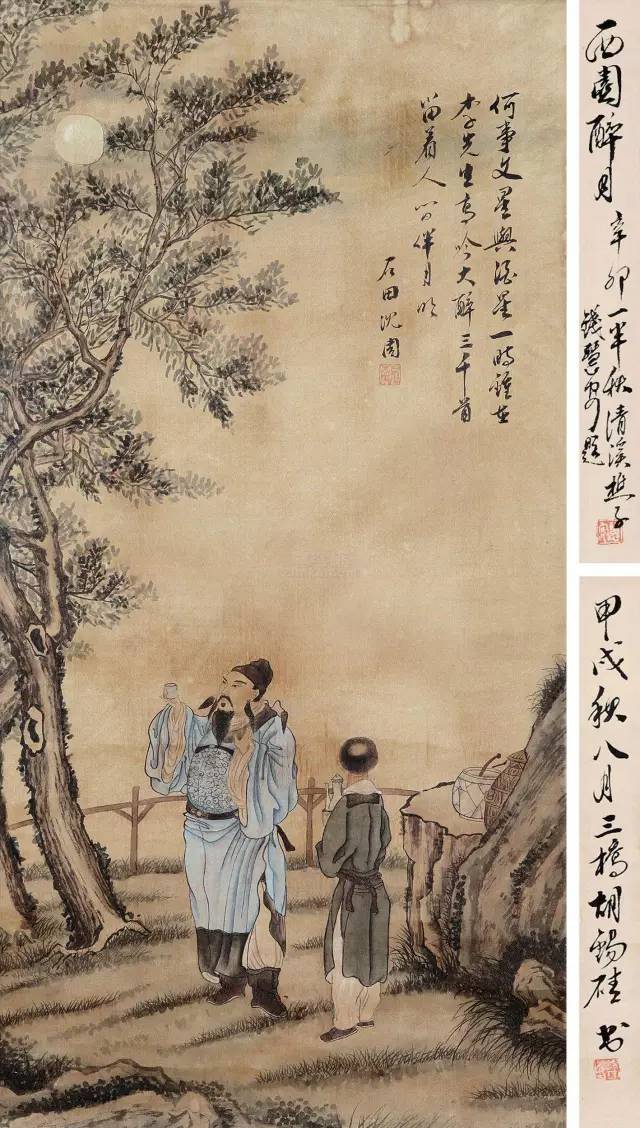 何事文星與酒星一時鍾在
李先生高吟大醉三千首
留着人間伴月明
石田沈周
西園醉月 辛卯一半秋清溪樵子
錢慧安題
甲戌秋八月三橋胡錫珪書